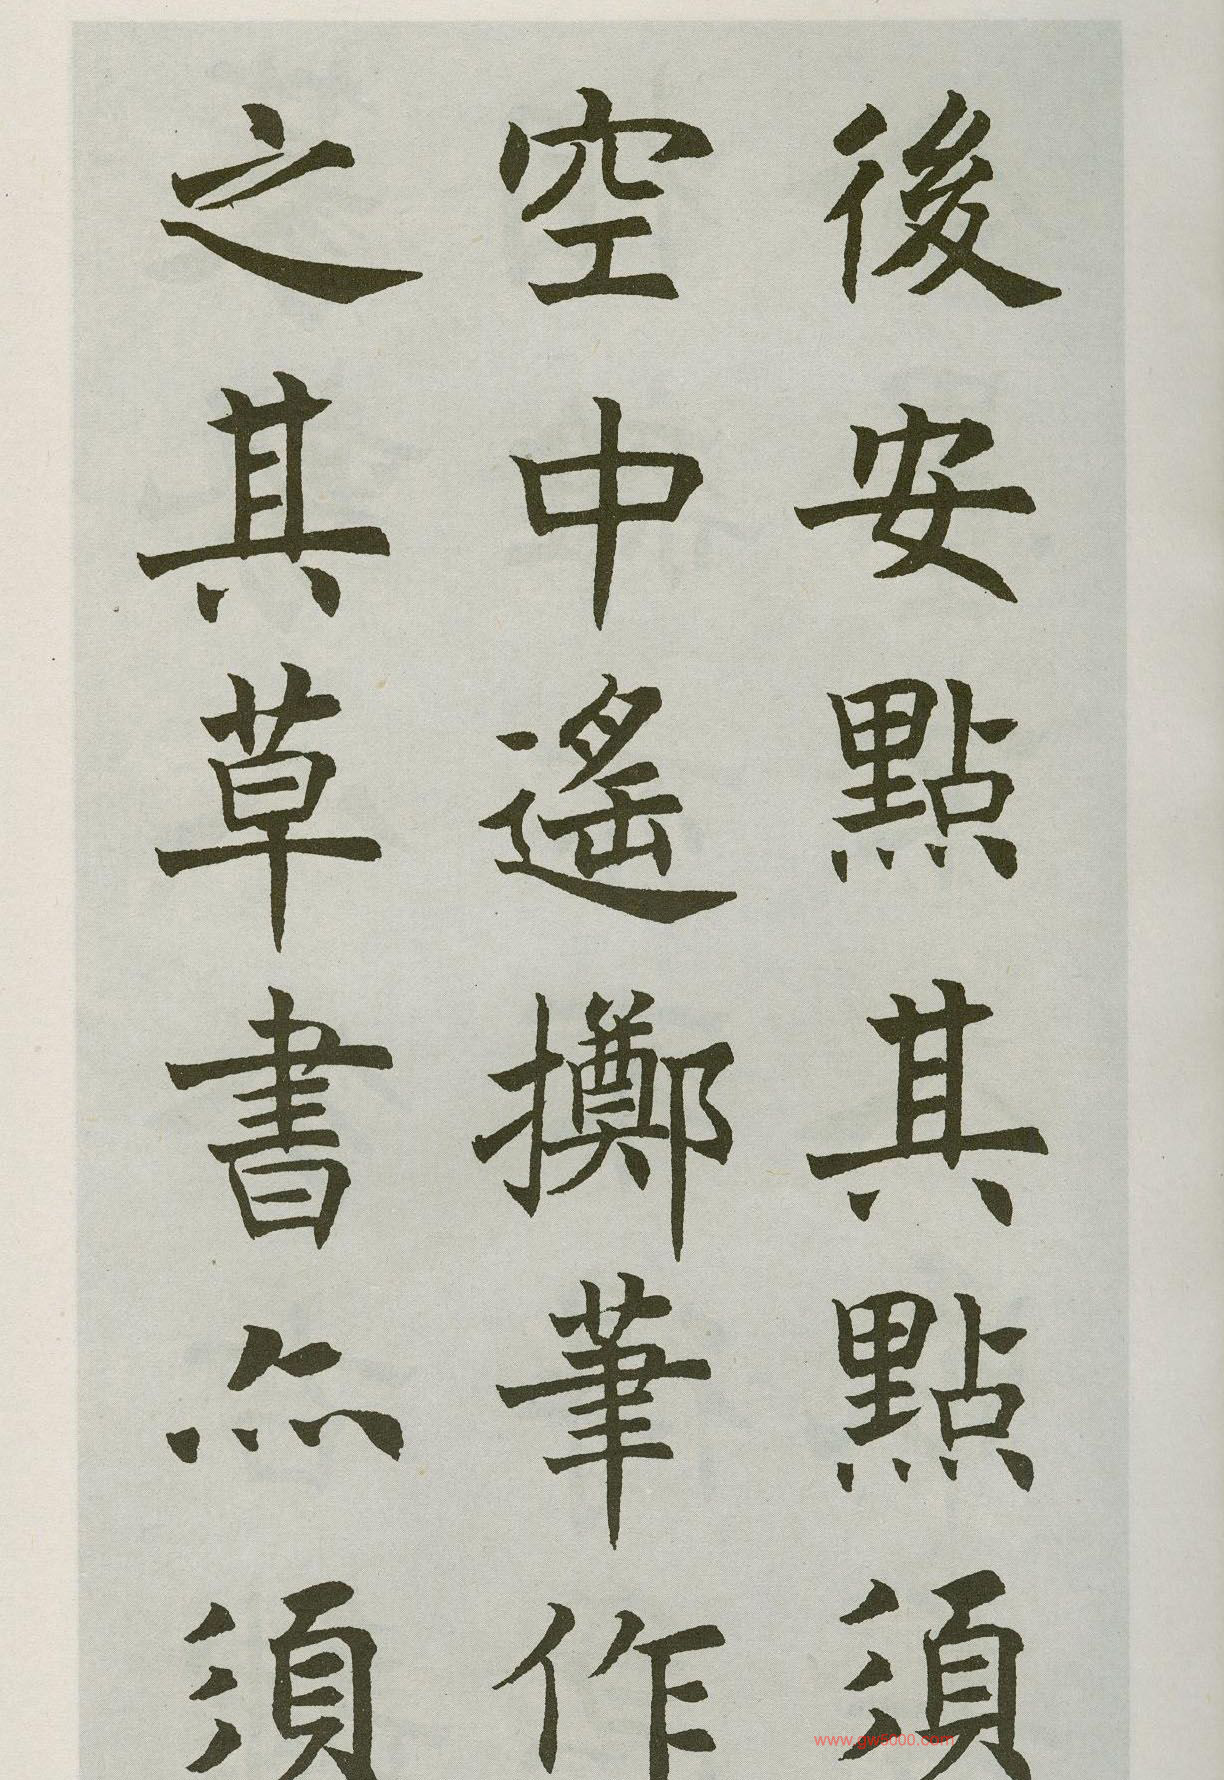 後安點其點須
空中遙擲筆作
之其草書亦須
www.gw5000.com